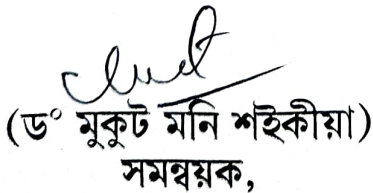 (ড° মুকুট মনি শইকীয়া)
সমন্বয়ক,